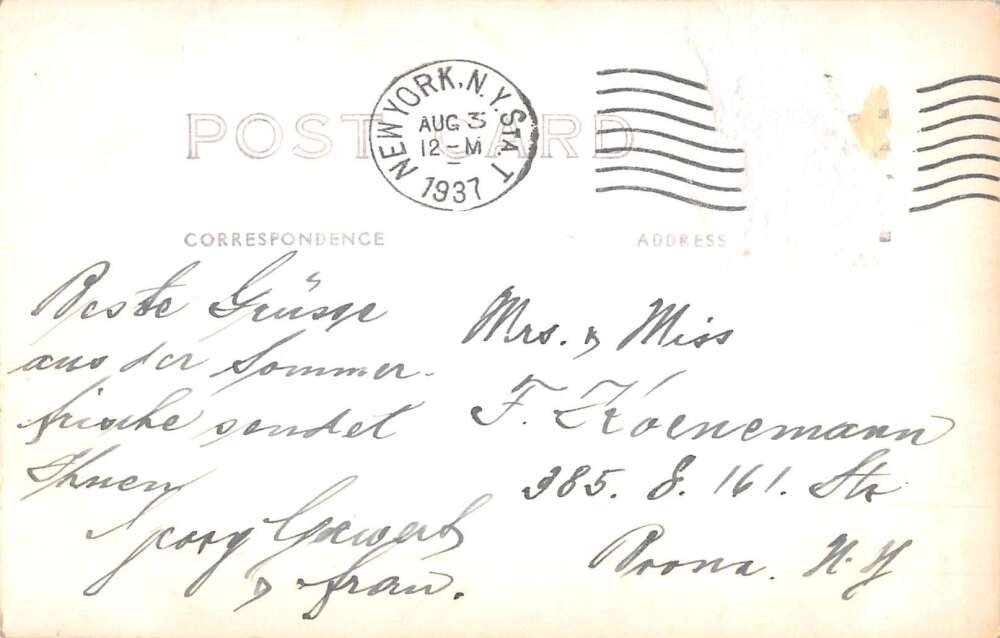 POST CARD
NEW YORK, N.Y. STA. T
AUG 3
12-M
1937
CORRESPONDENCE
ADDRESS
Beste Grüsse
aus der Sommer-
frische sendet
Ihnen
Georg
& Frau.
Mrs. & Miss
F. Koenemann
385. E. 161. Str
Bronx. N.Y